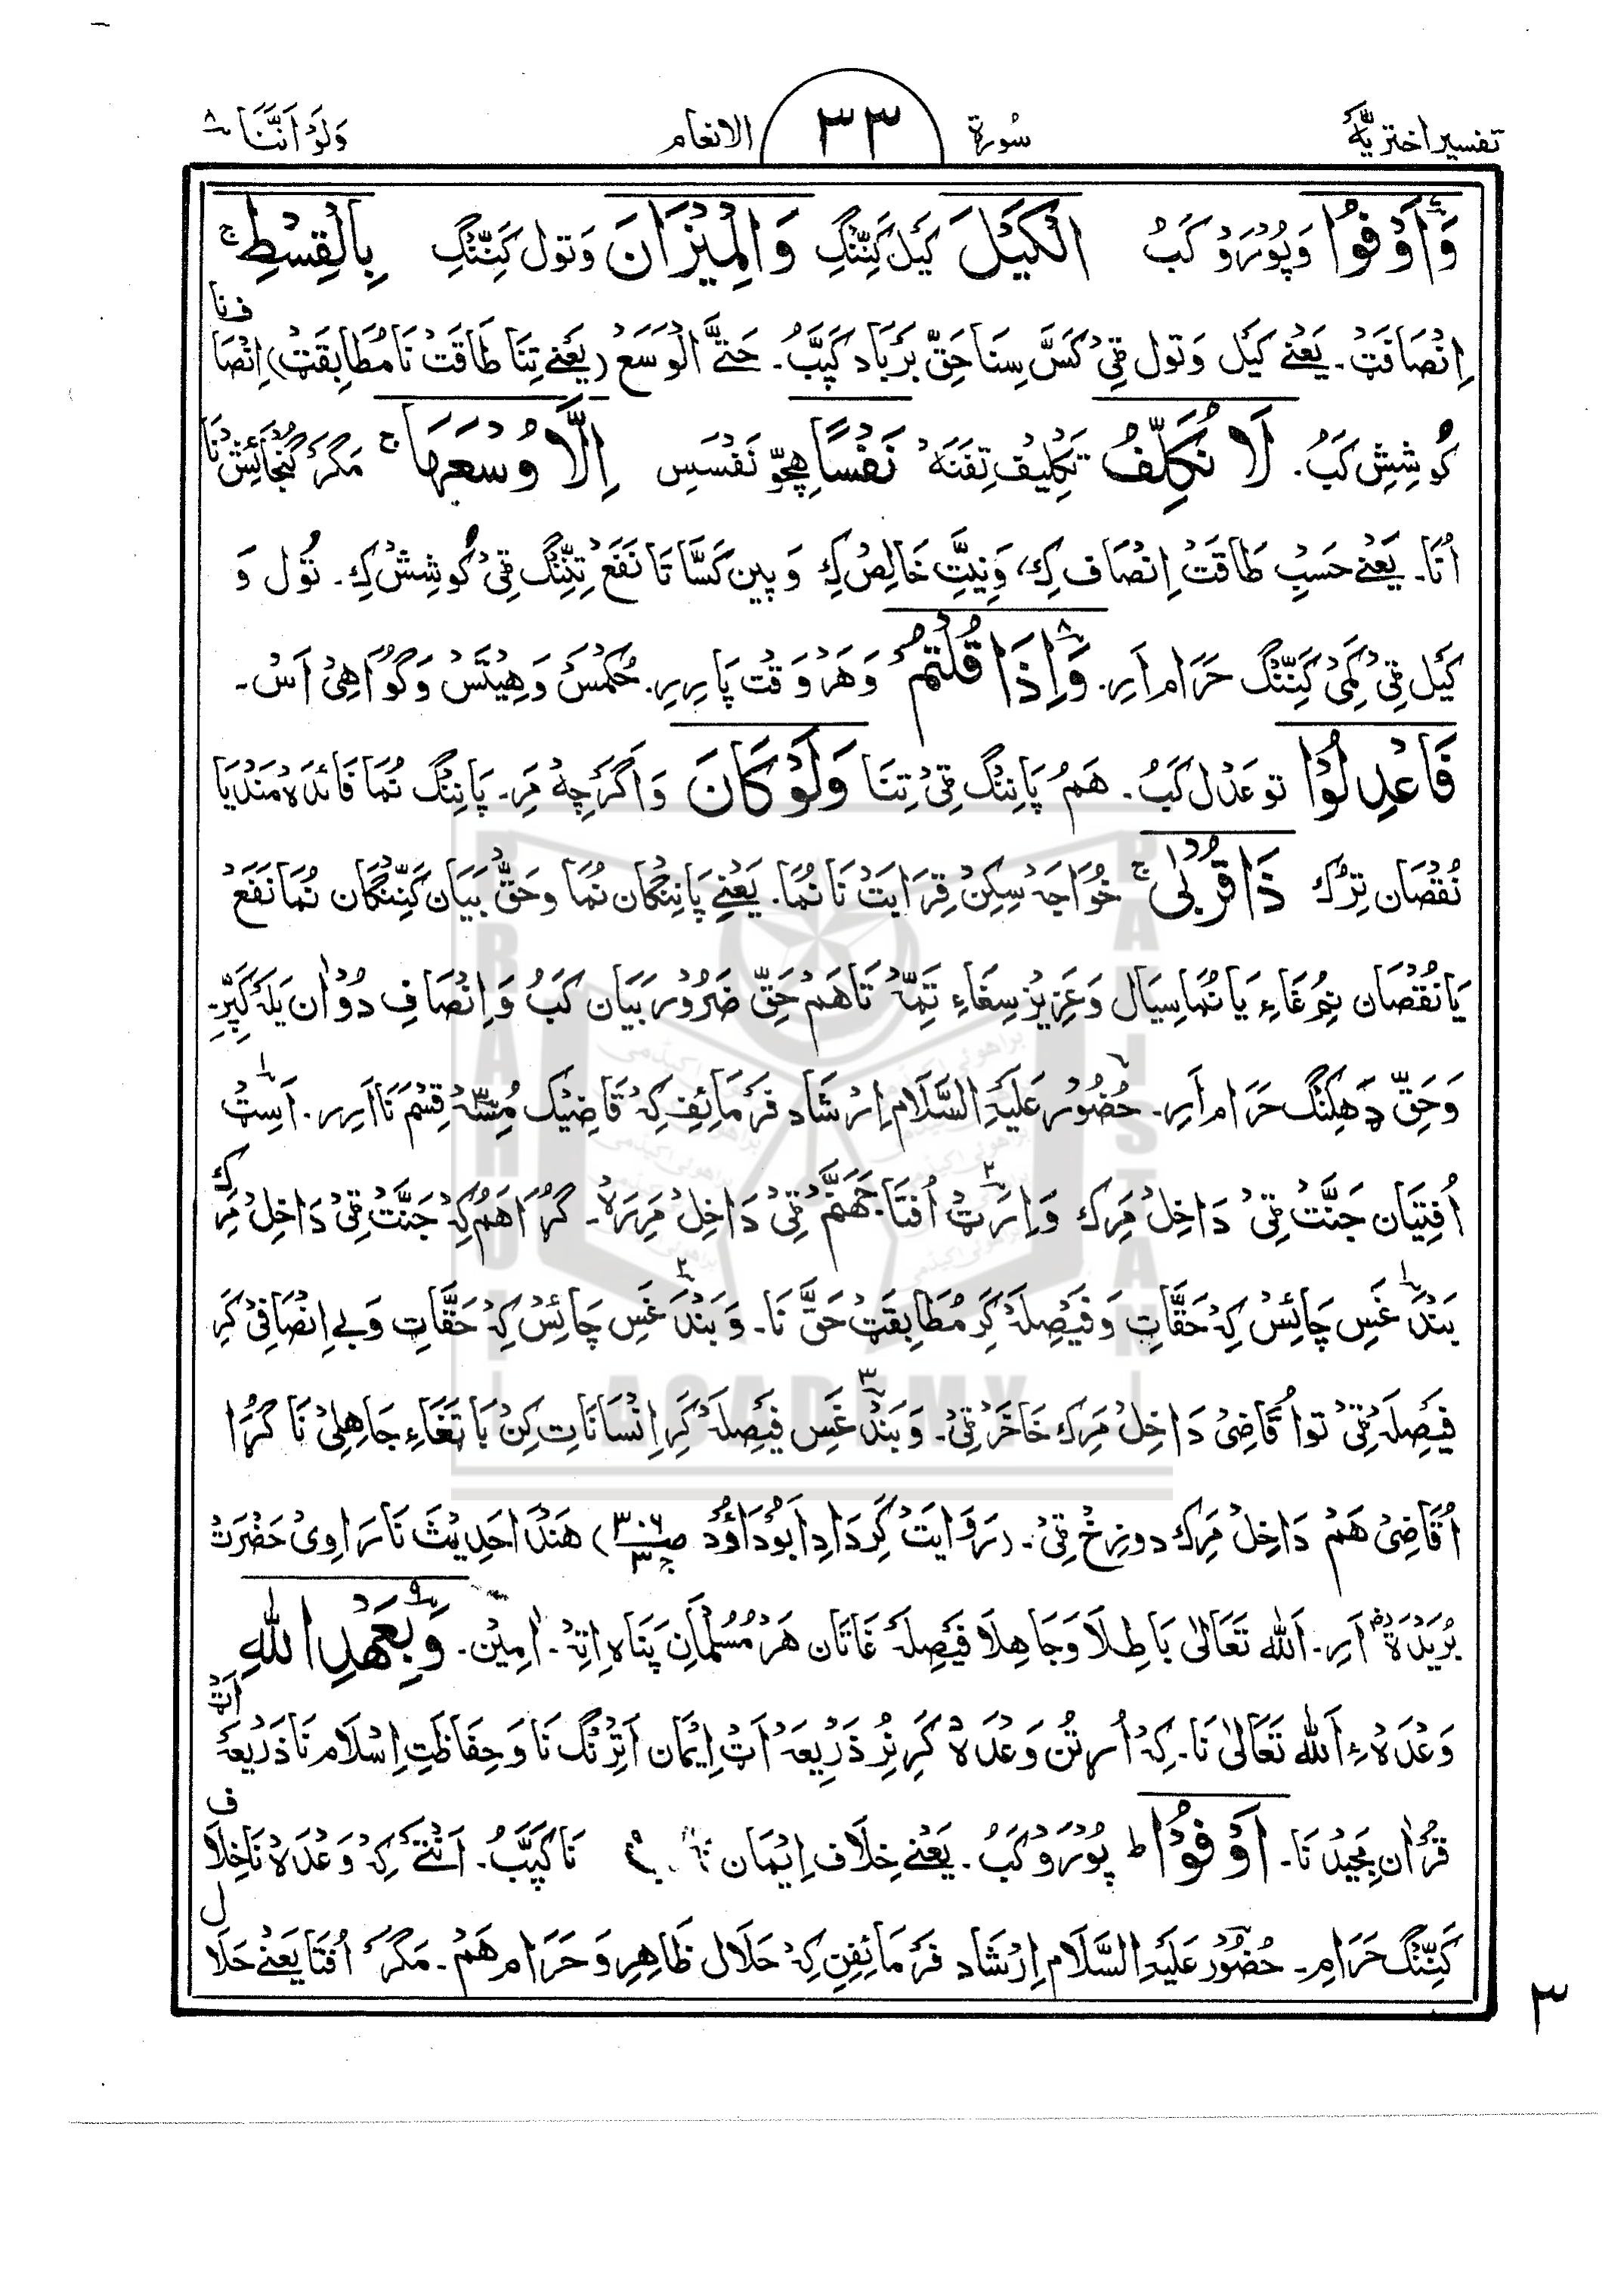 تفسیر اختریہ سُورۃ ۳۳ الانعام وَلَوْ اَنَّنَا ۸
وَاَوْفُوا وَپُوْرَوْ کَبُ الْکَیْلَ کَیْل کَنِّنْگِ وَالْمِیْزَانَ وَتول کَنِّنْگِ بِالْقِسْطِ ج
اِنْصَافَتْ۔ یَعْنے کَیْل وَتول ٹِیْ کَسَّ سِنَا حَقِّ بَرْبَاد کَپَبُ۔ حَتَّے الْوُسَعْ (یَعْنے تِنَا طَاقَتْ نَا مُطَابِقَتْ) اِنْصَاف نا
کُوشِشِ کَبُ۔ لَا نُکَلِّفُ تَکْلِیْف تِفَنَہْ نَفْسًا ہِچّو نَفْسَسِ اِلَّا وُسْعَہَا ج مَگَرْ گُنْجَائِشْ نَا
اُنَا۔ یَعْنے حَسَبِ طَاقَتْ اِنْصَاف کِ، وَنِیَّتِ خَالِصْ کِ وَپِین کَسَّا تَا نَفَعْ تِنِّنْگ ٹِیْ کُوشِشْ کِ۔ تُول وَ
کَیْل ٹِیْ کَمِیْ کَنِّنْگ حَرَام اَرِ۔ وَاِذَا قُلْتُمْ وَہَرْوَقْت پَارِرِ۔ حُکْمَسْ وَہِیْتَسْ وَگُوَاہِیْ اَسْ۔
فَاعْدِلُوْا تو عَدْل کَبُ۔ ہَمُ پَانِنْگ ٹِیْ تِنَا وَلَوْ کَانَ وَاَگَرْچِہْ مَرِ۔ پَانِنْگ نُمَا فَائدَہ مَنْدیَا
نُقْصَان تِرُک ذَا قُرْبٰی ج خُوَاجَہ سِکِنْ قِرَابَتْ نَا نُمَا۔ یَعْنِے پَانِنْگَان نُمَا وحَقّ بَیَان کَنِّنْگَان نُمَا نَفَعْ
یَا نُقْصَان نِمُ غَاءِ یَا نُمَا سِیَال وَعَزِیز سِغَاءِ تَمِّہْ تَاہَمْ حَقِّ ضَرُوْر بَیَان کَبُ وَاِنْصَافِ دُوْان یَلَہ کَپِّرِ۔
وَحَقِّ ڈَہِکِنْگ حَرَام اَرِ۔ حُضُوْر عَلَیْہِ السَّلَام اِرْشَاد فَرْمَائِفِ کِہْ قَاضِیْک مُسِّہْ قِسْم نَا اَرِر۔ اَسِٹْ
اُفْتِیَان جَنَّتْ ٹِیْ دَاخِلْ مَرِک وَاِرَٹْ اُفْتَا جَہَنَّمْ ٹِیْ دَاخِلْ مَرِرَہْ۔ گُرَا ہَمُ کِہْ جَنَّتْ ٹِیْ دَاخِلْ مَرِک
بَنْدَ غَسِ چَائِسْ کِہْ حَقَّاتِ وَفَیْصِلَہْ کَرِ مُطَابِقَتْ حَقَّ نَا۔ وَبَنْدَ غَسِ چَائِسْ کِہْ حَقَّاتِ وَبے اِنْصَافِیْ کَرِ
فَیْصِلَہْ ٹِیْ توا قَاضِیْ دَاخِلْ مَرِک خَاخَرْ ٹِیْ۔ وَبَنْدَ غَسِ فَیْصِلَہْ کَرِ اِنْسَانَاتِ کِنْ بَاتَغَاءِ جَاہِلِیْ نَا گُرَا
اُ قَاضِیْ ہَمْ دَاخِلْ مَرِک دوزِخْ ٹِیْ۔ (رَوَایَتْ کَرِ دَادِ اَبُوْدَاؤُدْ صہ ۳۰۶ ج۳) ہَنْدَا حَدِیْثَ نَا رَاوِیْ حَضْرَتْ
بُرَیْدَۃؓ اَرِ۔ اَللّٰہ تَعَالٰی بَاطِلَا وَجَاہِلَا فَیْصِلَہْ غَاتَان ہَرْ مُسْلْمَانِ پَنَاہ اِتِہْ۔ اٰمِیْن۔ وَبِعَہْدِ اللّٰہِ
وَعْدَہْ ءِ اَللّٰہ تَعَالیٰ نَا۔ کِہْ اُرْتُن وَعْدَہْ کَرِ نِرْ ذَرِیْعَہْ اَٹْ اِیْمَان اَتِرْنْگ نَا وَحِفَاظَتِ اِسْلَام نَا ذَرِیْعَہْ اَٹْ
قُرْاٰنِ مَجِیْدْ نَا۔ اَوْفُوْا ط پُوْرَوْ کَبُ۔ یَعْنے خِلَاف اِیْمَان نَا کَپَبُ۔ اَنْتَے کِہْ وَعْدَہْ نَا خِلَاف
کَنِّنْگ حَرَامِ۔ حُضُوْر عَلَیْہِ السَّلَام اِرْشَاد فَرْمَائِفِنِ کِہْ حَلَال ظَاہِرِ وَحَرَام ہَمْ۔ مَگَرْ اُفْتَا یَعْنے حَلَال
۳
BRAHUI ACADEMY PAKISTAN
براھوئی اکیڈمی